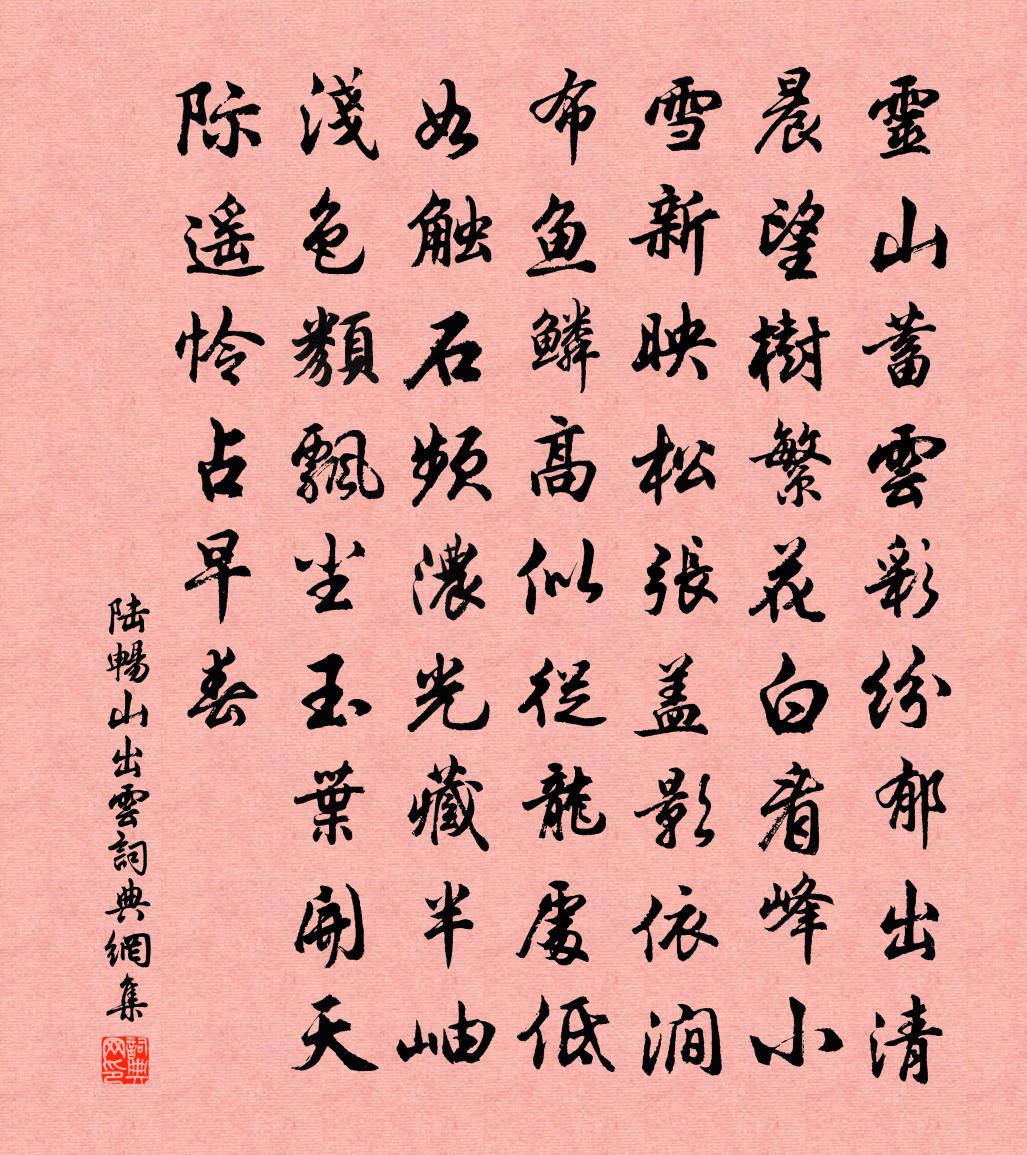 靈山蓄雲彩紛郁出清
晨望樹繁花白看峰小
雪新映松張盖影依澗
布鱼鱗高似從龍處低
如触石頻濃光藏半岫
淺色類飄尘玉葉開天
际遥怜占早春
陆暢山出雲詞典網集
詞典网印